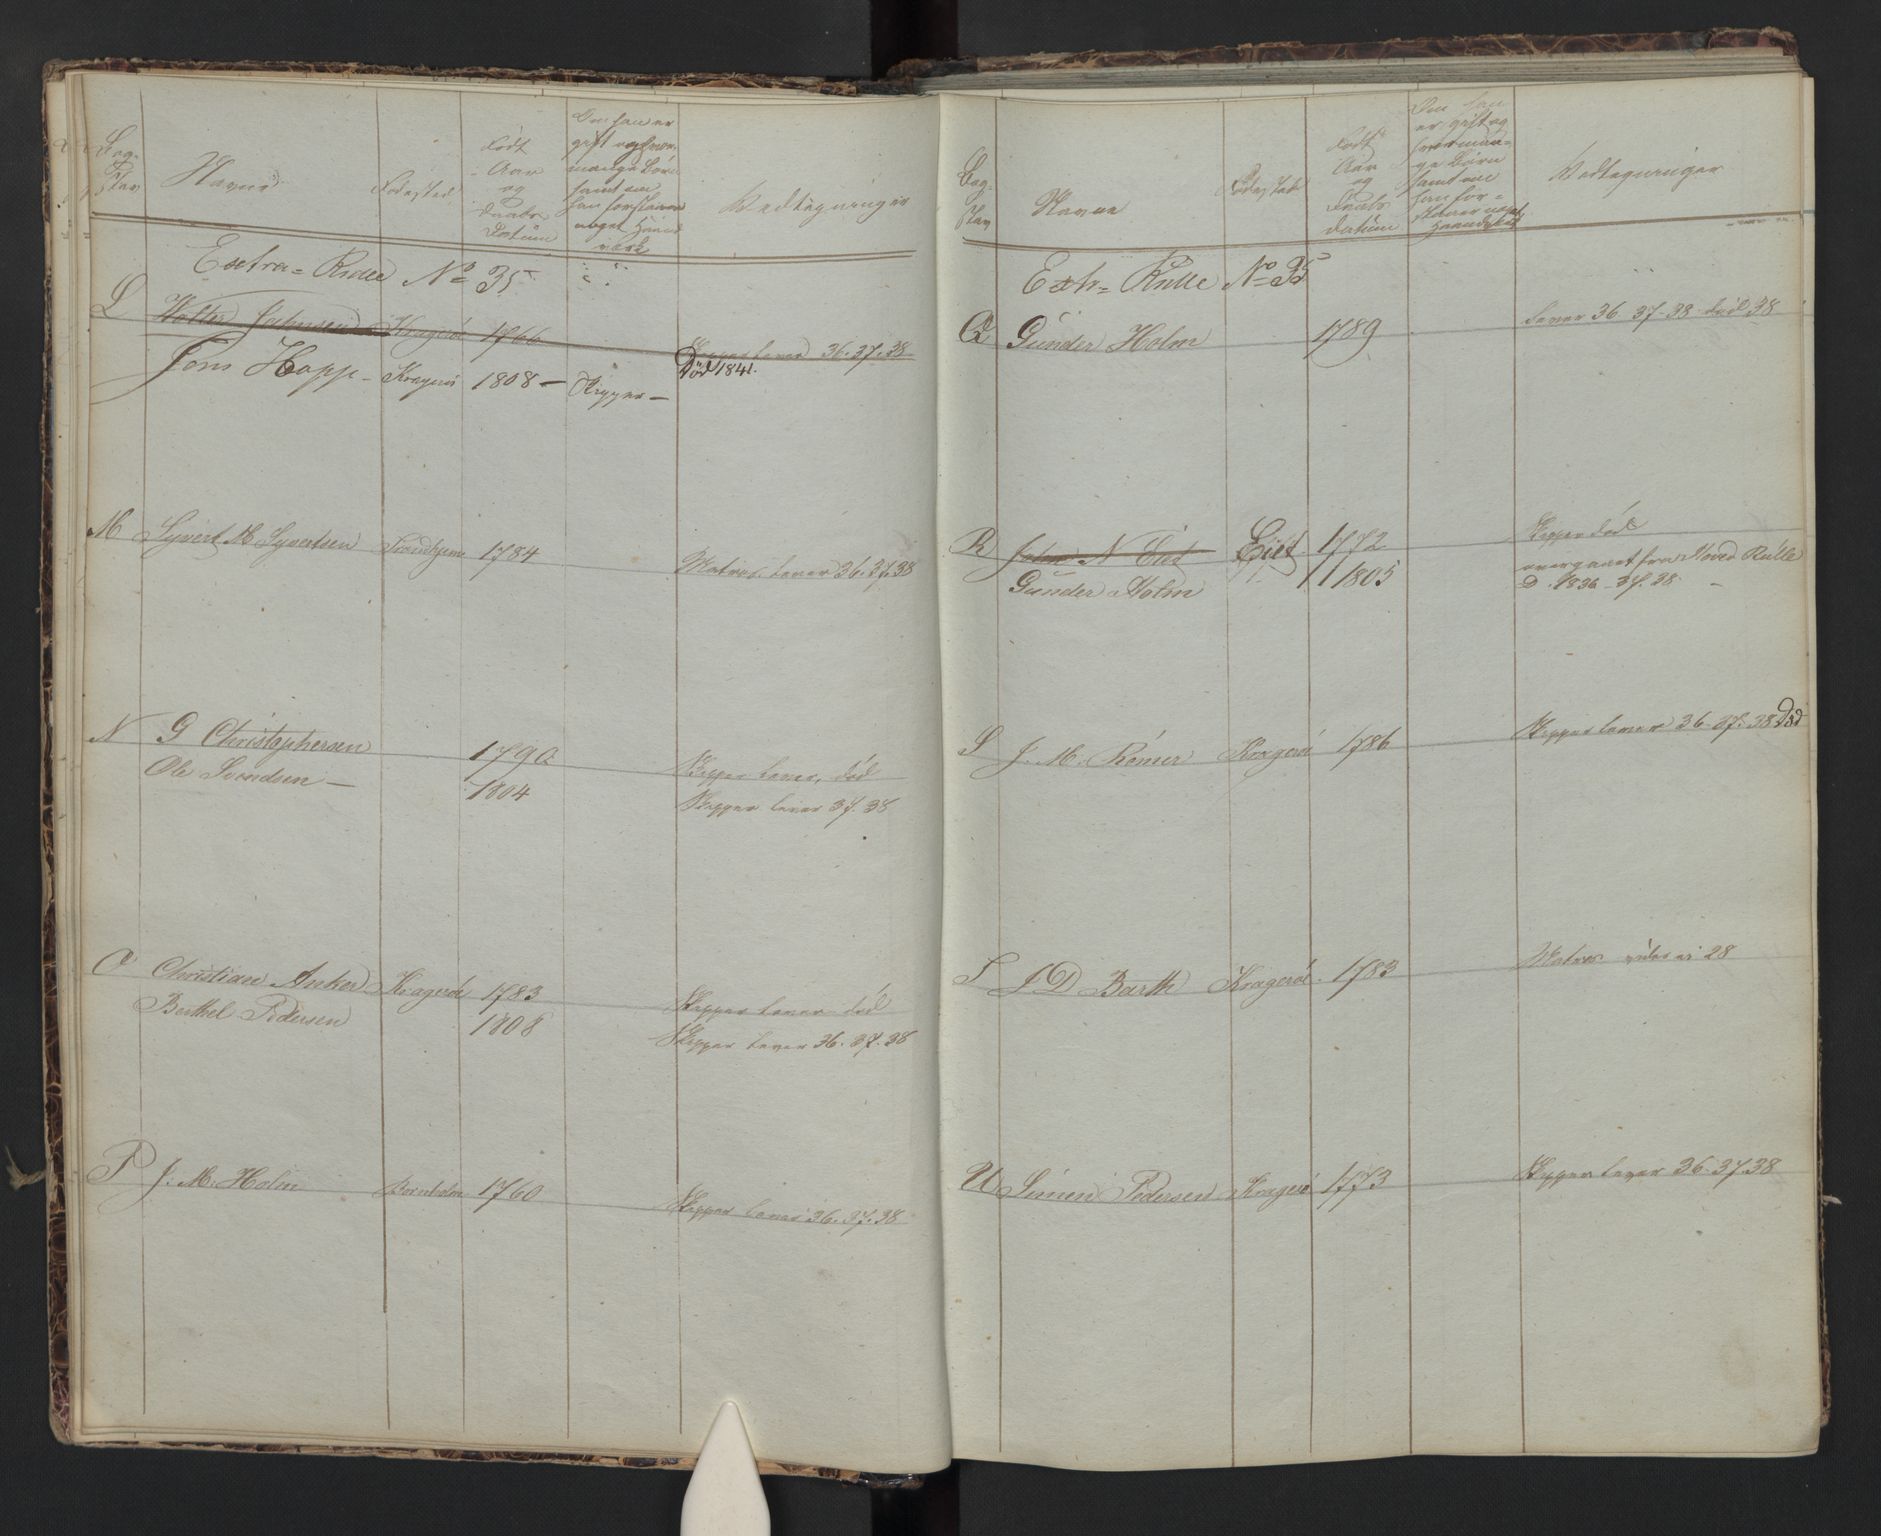 Bog-
stav
Navne
Fødested
Født
Aar
og
Daabs
Datum
Om han er
gift og hvor
mange Børn
samt om
han forstaaer
noget Haand
værk
Vedtegninger
Extra-Rulle No 35
L Wolter Kragerø 1766 Skipper lever 36. 37. 38
Død 1841.
Jens Happ - Kragerø 1808 - Skipper -
M Syvert M Syvertsen Trondhjem 1784
Matros lever 36. 37. 38
N G Christophersen 1790 Skipper lever, død
Ole Svendsen - 1804 Skipper lever 37. 38
O Christian Anker Kragerø 1783 Skipper lever død
Berthel Pedersen 1808 Skipper lever 36. 37. 38
P J. M. Holm Bornholm 1760 Skipper lever 36. 37. 38
Bog-
stav
Navne
Fødested
Født
Aar
og
Daabs
datum
Om han
er gift og
hvor man-
ge Børn
samt om
han for-
staaer noget
Haandværk
Vedtegninger
Extr- Rulle No 35
Q Gunder Holm 1789 Lever 36 37-38 død 38
R John N 1772 Skipper død
Gunder Holm " 1805 overgaaet fra Hoved Rulle
D. 1836 - 37. 38. -
S J. M. Rømer Kragerø 1786 Skipper lever 36-37-38 Død
T J D Barth Kragerø 1783 Matros 28
U Simen Pedersen Kragerø 1773 Skipper lever 36-37.38